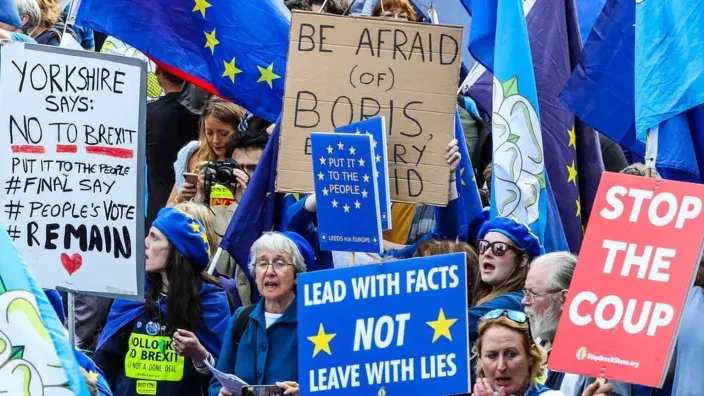 YORKSHIRE
SAYS:
NO TO BREXIT
PUT IT TO THE PEOPLE
#FINAL SAY
#PEOPLE'S VOTE
#REMAIN
BE AFRAID
(OF)
BORIS,
PUT IT
TO THE
PEOPLE
LEEDS FOR EUROPE
LEAD WITH FACTS
NOT
LEAVE WITH LIES
STOP
THE
COUP
StopBrexitShop.org
OLLO
TO BREXIT
NOT A DONE DEAL